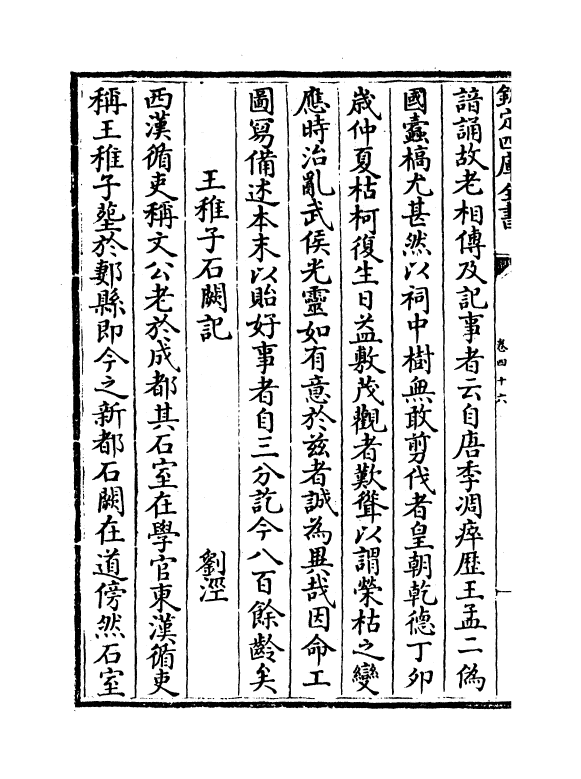 欽定四庫全書
卷四十六
諳誦故老相傳及記事者云自唐季凋瘁歷王孟二偽
國蠧槁尤甚然以祠中樹無敢剪伐者皇朝乾德丁卯
歳仲夏枯柯復生日益敷茂觀者歎聳以謂榮枯之變
應時治亂武侯光靈如有意於兹者誠為異哉因命工
圖寫備述本末以貽好事者自三分訖今八百餘齡矣
王稚子石闕記
劉涇
西漢循吏稱文公老於成都其石室在學官東漢循吏
稱王稚子塟於郪縣即今之新都石闕在道傍然石室